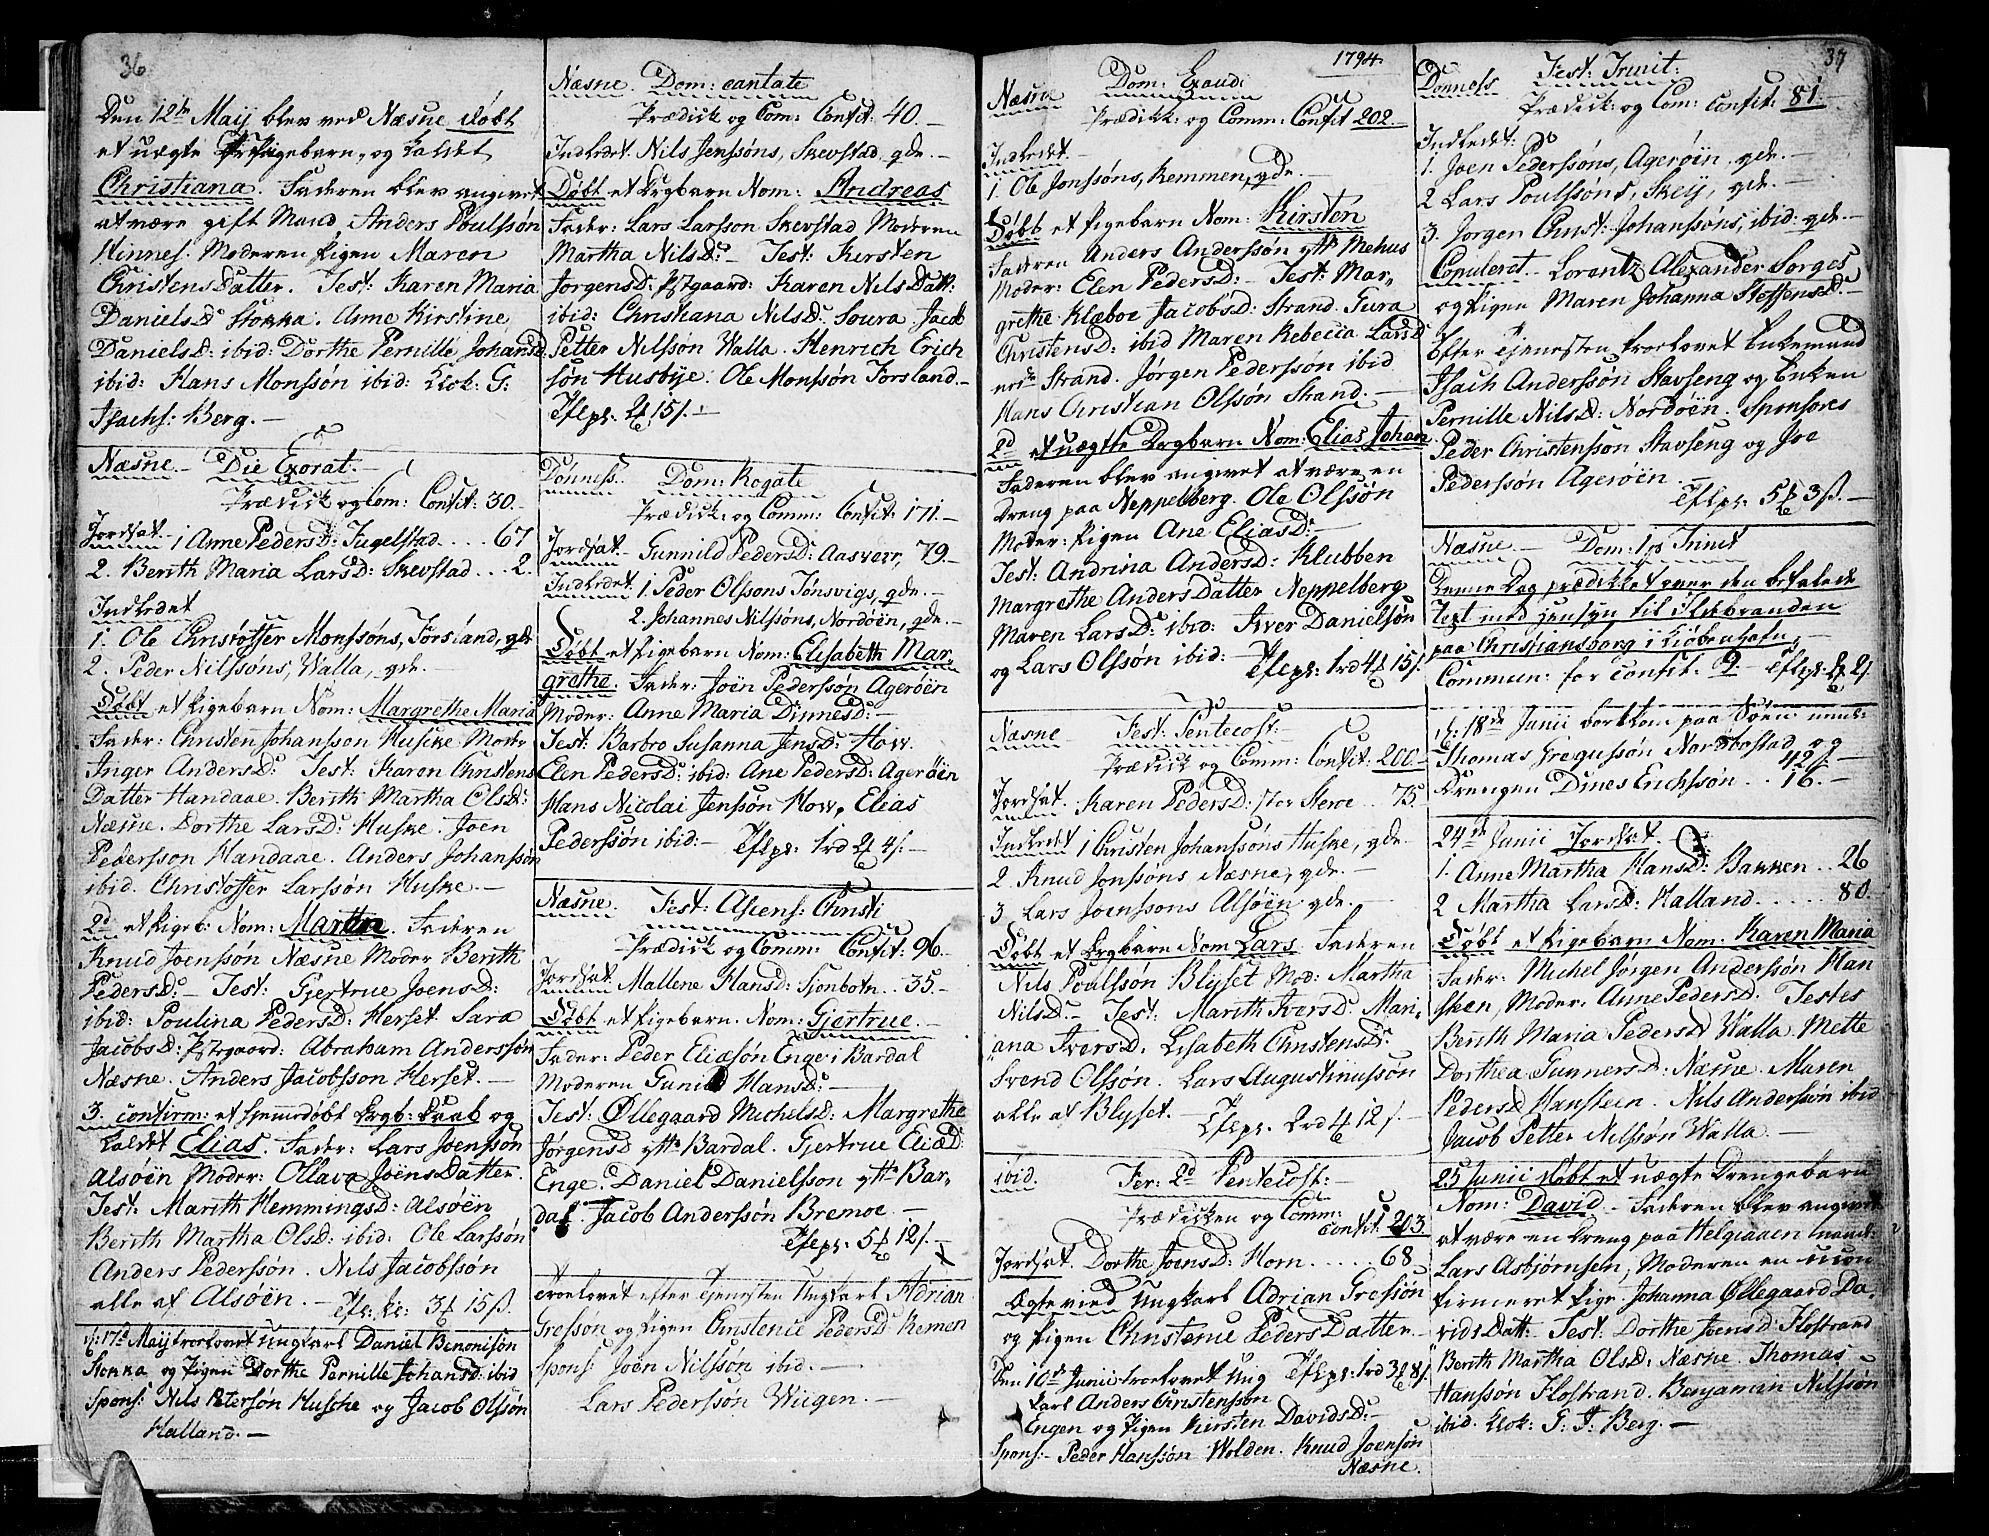 36
Den 12te Maij blev ved Næsne døbt
et uægte Pigebarn, og kaldet
Christiana. Faderen blev angivet
at være gift Mand, Anders Poulssøn
Hinnes. Moderen Pigen Maren
Christens Datter. Test: Karen Maria
Daniels D: Stokka. Anne Kirstine
Daniels D: ibid: Dorthe Pernille Johans D
ibid: Hans Monssøn ibid: Klok: G:
Isachs: Berg.
Næsne. Die Exorat.
Prædick og Com: Confit: 30.
Jordsat. 1 Anne Peders D: Jugelstad .... 67
2. Berith Maria Lars D: Skevstad ... 2.
Indledet
1. Ole Christoffer Monssøns, Forsland, gde
2. Peder Nilssøns, Walla, gde.
Døbt et Pigebarn Nom: Margrethe Maria
Fader: Christen Johansson Huske Moder
Inger Anders D: Test: Karen Christens
Datter Handaae. Berith Martha Ols D:
Næsne. Dorthe Lars D: Huske. Joen
Pedersson Handaae. Anders Johanssøn
ibid. Christoffer Larssøn Huske.
2d et Pigeb: Nom: Martha. Faderen
Knud Joenssøn Næsne Moder Berith
Peders D: Test: Gjertrue Joens D:
ibid: Poulina Peders D: Herset. Sara
Jacobs D: Pstgaard: Abraham Anderssøn
Næsne. Anders Jacobsson Herset.
3. confirm: et hjemmedøbt Drgb: Daab og
kaldet Elias. Fader: Lars Joenssøn
Alsøen Moder: Ollava Joens Datter.
Test: Marith Hemmings D: Alsøen
Berith Martha Ols D: ibid: Ole Larssøn
Anders Pederssøn. Nils Jacobssøn
alle af Alsøen.
17d Maij troelovet Ungkarl Daniel Benonissøn
Stokka og Pigen Dorthe Pernille Johans D: ibid
Spons: Nils Peterssøn Husche og Jacob Olssøn
Halland.
Næsne. Dom: cantate
Prædick og Com: Confit: 40.
Indledet Nils Jenssøns, Skevstad, gde.
Døbt et Drgbarn Nom: Andreas
Fader: Lars Larsson Skevstad Moderen
Martha Nils D: Test: Kirsten
Jørgens D: Pstgaard: Karen Nils Datt:
ibid: Christiana Nils D: Soura. Jacob
Petter Nilssøn Walla. Henrich Erich
søn Husbye. Ole Monssøn Forsland.
Dønness. Dom: Rogate
Prædick: og Comm: Confit: 171.
Jordsat. Gunnild Peders D: Aasvær, 79.
Indledet 1. Peder Olssons Tønsvigs, gde.
2. Johannes Nilssøns, Nordøen, gde.
Døbt et Pigebarn Nom: Elisabeth Mar-
grethe. Fader: Joen Pederssøn Agerøen
Moder: Anne Maria Dinnes D:
Test: Barbro Susanna Jens D: How.
Elen Peders D: ibid: Ane Peders D: Agerøen
Hans Nicolai Jenssøn How, Elias
Pederssøn ibid:
Næsne. Fest: Ascens: Christi
Prædick og Comm: Confit: 96.
Jordsat: Mallene Hans D: Sjonbotn .. 35.
Døbt et Pigebarn. Nom: Gjertrue.
Fader: Peder Eliæsøn Enge i Bardal
Moderen Gunild Hans D:
Test: Øllegaard Michels D: Margrethe
Jørgens D ytt: Bardal. Gjertrue Eliæ D:
Enge. Daniel Danielsson ytt: Bar-
dal. Jacob Anderssøn Bremoe.
Troelovet efter Tjenesten Ungkarl Adrian
Gressøn og Pigen Christence Peders D: Remen
Spons: Joen Nilssøn ibid.
Lars Pederssøn Wiigen.
1794.
Næsne Dom: Exaudi
Prædick: og Comm: Confit 202.
Indledet.
1 Ole Jonssøns, Remmen, gde.
Døbt et Pigebarn Nom: Kirsten
Faderen Anders Anderssøn ytt: Mehus
Moder: Elen Peders D: Test: Mar-
grethe Klæboe Jacobs D: Strand. Gura
Christens D: ibid Maren Rebecca Lars D
Strand. Jørgen Pederssøn ibid
Hans Christian Olssøn Strand.
2d et uægte Drgbarn Nom: Elias Johan
Faderen blev angivet at være en
Dreng paa Neppelberg. Ole Olssøn
Moder: Pigen Ane Elias D:
Test: Andrina Anders D: Klubben
Margrethe Anders Datter Neppelberg
Maren Lars D: ibid: Iver Danielssøn
og Lars Olssøn ibid:
Næsne Fest: Pentecost:
Prædick og Comm: Confit: 200.
Jordsat. Karen Peders D: Stor .. 75.
Indledet 1 Christen Johanssøns Huske, gde.
2. Knud Jonssøns Næsne, gde.
3. Lars Joenssons Alsøen gde.
Døbt et Drgbarn Nom Lars. Faderen
Nils Poulssøn Blyset Mod: Martha
Nils D: Test: Marith Ivers D: Mari-
ana Ivers D: Lisabeth Christens D:
Svend Olssøn. Lars Augustinussøn
alle af Blyset.
ibid. Fer: 2d Pentecost:
Prædicken og Comm:
Confit: 203.
Jordsat. Dorthe Joens D: Horn .... 68
Ægtevied Ungkarl Adrian Gressøn
og Pigen Christence Peders Datter
Den 10de Junii troelovet Ung
karl Anders Christenssøn
Engen og Pigen Kirsten Davids D:
Spons: Peder Hanssøn Wolden. Knud Joenssøn
Næsne.
37
Dønness Fest: Trinit:
Prædick: og Com: Confit: 81.
Indledet:
1. Joen Pederssøns, Agerøen, gde.
2 Lars Poulssøns, Skeij, gde.
3. Jørgen Christ: Johanssøns, ibid: gde.
Copuleret. Lorentz Alexander Sorges
og Pigen Maren Johanna Steffens D:
Efter Tjenesten troelovet Enkemand
Isach Anderssøn Stavseng og Enken
Pernille Nils D: Nordøen. Sponsores
Peder Christenssøn Stavseng og Joe
Pederssøn Agerøen
Næsne Dom: 1 p Trinit
Denne Dag prædikket over den befalede
Text med hensyn til Ildebranden
paa Christiansborg i Kiøbenhafn.
Commun: for Confit: 9.
18de Junii bortkom paa Søen
Thomas Gregussøn Nordbostad og 42.
Drengen Dines Erichssøn .. 16.
24de Junii Jordsat.
1. Anne Martha Hans D: Bakken .. 26
2 Martha Lars D: Halland ..... 80.
Døbt et Pigebarn Nom: Karen Maria
Fader: Michel Jørgen Anderssøn Han
steen, Moder: Anne Peders D: Testes
Berith Maria Peders D Walla Mette
Dorthea Gunners D: Næsne. Maren
Peders D Hansteen. Nils Anderssøn ibid
Jacob Petter Nilssøn Walla.
25 Junii døbt et uægte Drengebarn
Nom: David. Faderen blev angivet
at være en Dreng paa Helgiaaen
Lars Asbjørnsen, Moderen en uicon
firmeret Pige Johanna Øllegaard Da-
vids Datt: Test: Dorthe Joens D Flostrand
Berith Martha Ols D: Næsne. Thomas
Hanssøn Flostrand. Benjamin Nilssøn
ibid. Klok: G: I: Berg.